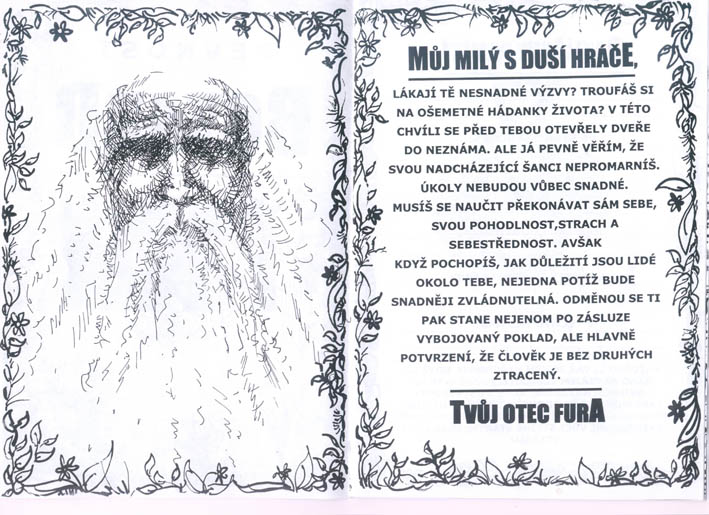 MŮJ MILÝ S DUŠÍ HRÁČE,
LÁKAJÍ TĚ NESNADNÉ VÝZVY? TROUFÁŠ SI
NA OŠEMETNÉ HÁDANKY ŽIVOTA? V TÉTO
CHVÍLI SE PŘED TEBOU OTEVŘELY DVEŘE
DO NEZNÁMA. ALE JÁ PEVNĚ VĚŘÍM, ŽE
SVOU NADCHÁZEJÍCÍ ŠANCI NEPROMARNÍŠ.
ÚKOLY NEBUDOU VŮBEC SNADNÉ.
MUSÍŠ SE NAUČIT PŘEKONÁVAT SÁM SEBE,
SVOU POHODLNOST,STRACH A
SEBESTŘEDNOST. AVŠAK
KDYŽ POCHOPÍŠ, JAK DŮLEŽITÍ JSOU LIDÉ
OKOLO TEBE, NEJEDNA POTÍŽ BUDE
SNADNĚJI ZVLÁDNUTELNÁ. ODMĚNOU SE TI
PAK STANE NEJENOM PO ZÁSLUZE
VYBOJOVANÝ POKLAD, ALE HLAVNĚ
POTVRZENÍ, ŽE ČLOVĚK JE BEZ DRUHÝCH
ZTRACENÝ.
TVŮJ OTEC FURA